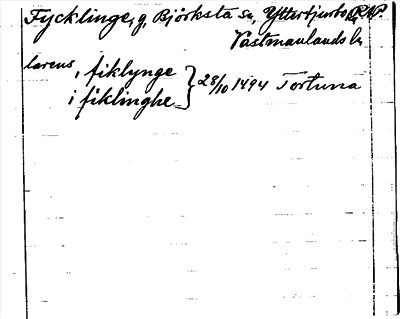 Fycklinge, g, Björksta sn, Yttertjurbo
Västmanlands l.
larens, fiklynge
i fiklinghe } 28/10 1494 Fortuna